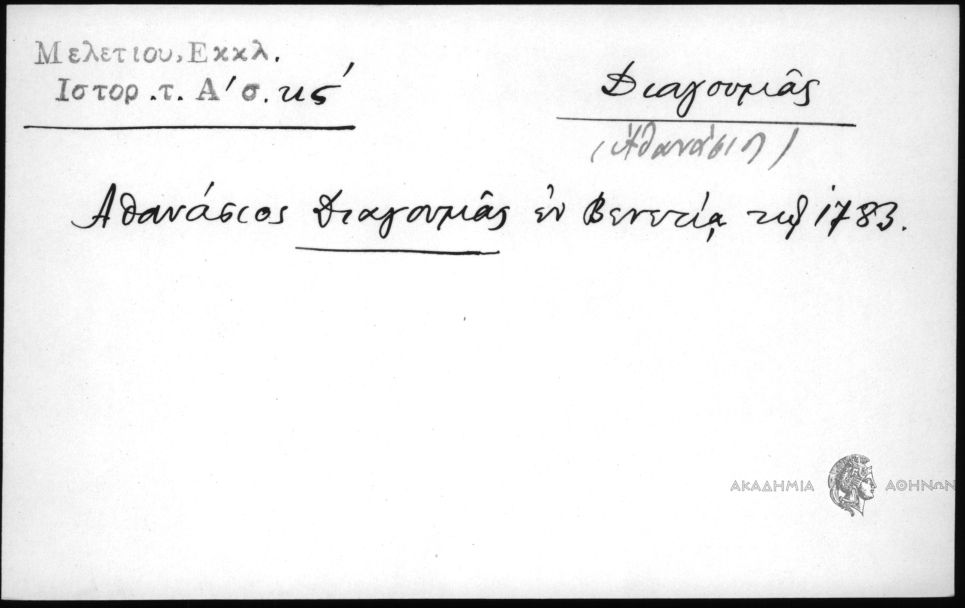 Μελετιου, Εκκλ.
Ιστορ. τ. Α' σ. κς'
Διαγουμιᾶς
(Ἀθανάσιος)
Ἀθανάσιος Διαγουμιᾶς ἐν Βενετίᾳ τῷ 1783.
ΑΚΑΔΗΜΙΑ ΑΘΗΝΩΝ